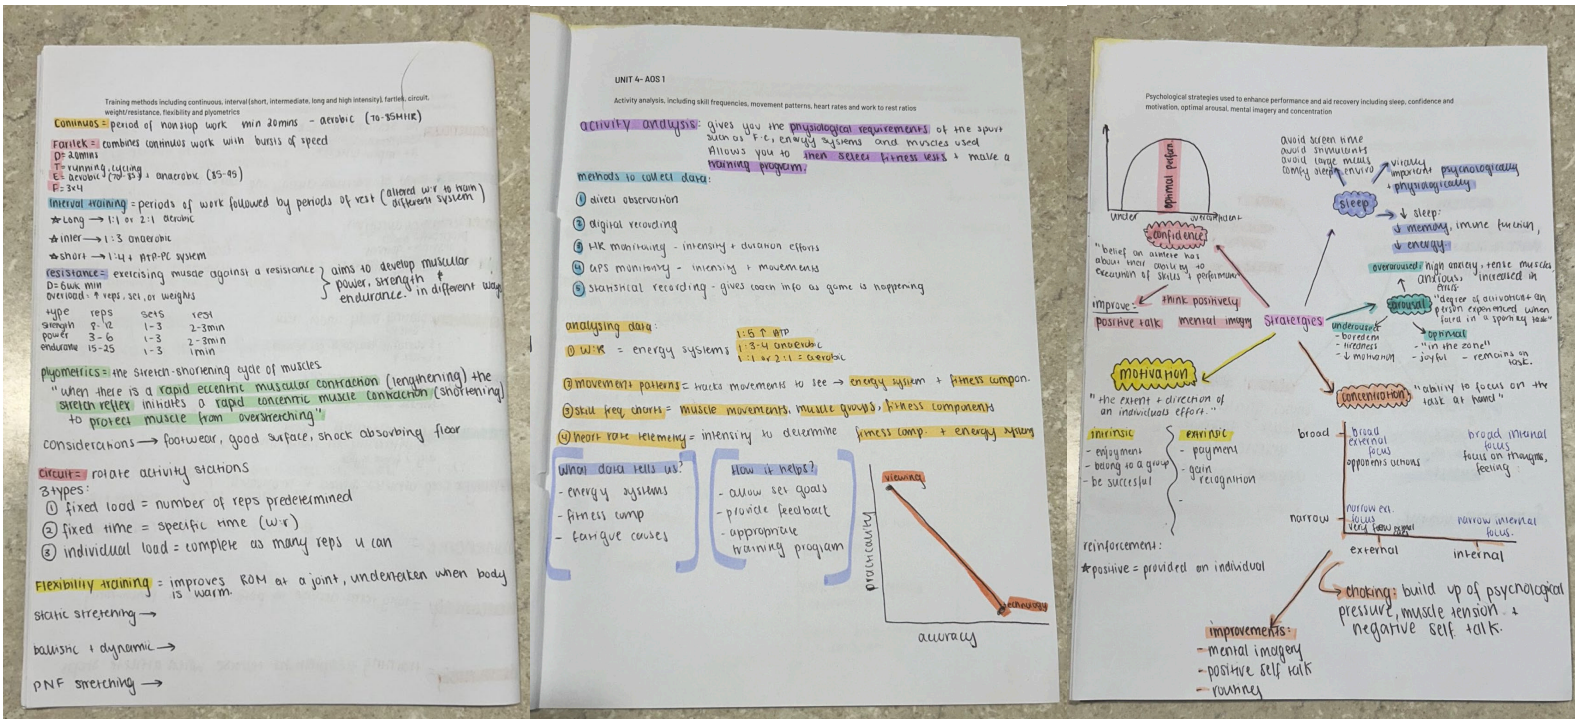 Training methods including continuous, interval (short, intermediate, long and high intensity), fartlek, circuit,
weight/resistance, flexibility and plyometrics
Continuos = period of nonstop work min 20mins - aerobic (70-85MHR)
Fartlek = combines continuos work with bursts of speed
D= 20mins
T= running, cycling
E= aerobic (70-85) + anaerobic (85-95)
F= 3x4
Interval training = periods of work followed by periods of rest (altered w:r to train
different system)
★ Long → 1:1 or 2:1 aerobic
★ inter → 1:3 anaerobic
★ short → 1:4+ ATP-PC system
resistance = exercising muscle against a resistance
D= 6wk min
overload = ↑ reps, set, or weights
aims to develop muscular
power, strength +
endurance. in different ways
type reps sets rest
strength 8-12 1-3 2-3min
power 3-6 1-3 2-3min
endurance 15-25 1-3 1min
plyometrics = the stretch-shortening cycle of muscles
"when there is a rapid eccentric muscular contraction (lengthening) the
stretch reflex initiates a rapid concentric muscle contraction (shortening)
to protect muscle from overstretching"
considerations → footwear, good surface, shock absorbing floor
circuit = rotate activity stations
3 types:
① fixed load = number of reps predetermined
② fixed time = specific time (w:r)
③ individual load = complete as many reps u can
Flexibility training = improves ROM at a joint, undertaken when body
is warm.
static stretching →
ballistic + dynamic →
PNF stretching →
UNIT 4- AOS 1
Activity analysis, including skill frequencies, movement patterns, heart rates and work to rest ratios
activity analysis: gives you the physiological requirements of the sport
such as F.C, energy systems and muscles used
Allows you to then select fitness tests + make a
training program.
methods to collect data:
① direct observation
② digital recording
③ HR monitoring - intensity + duration efforts
④ GPS monitoring - intensity + movements
⑤ statistical recording - gives coach info as game is happening
analysing data:
① W:R = energy systems
1:5 ↑ ATP
1:3-4 anaerobic
1:1 or 2:1 = aerobic
② movement patterns = tracks movements to see → energy system + fitness compon.
③ skill freq charts = muscle movements, muscle groups, fitness components
④ heart rate telemetry = intensity to determine fitness comp. + energy systems
what data tells us?
- energy systems
- fitness comp
- fatigue causes
How it helps?
- allow set goals
- provide feedback
- appropriate
training program
practicality
viewing
technology
accuracy
Psychological strategies used to enhance performance and aid recovery including sleep, confidence and
motivation, optimal arousal, mental imagery and concentration
optimal perform.
under
overconfident
confidence
"belief an athlete has
about their ability to
execution of skills + performance"
improve:
think positively
positive talk
mental imagry
Stratergies
avoid screen time
avoid stimulants
avoid large meals
comfy sleep enviro
sleep
vitally
important psychologically
+ physiologically
↓ sleep:
↓ memory, immune function,
↓ energy.
overaroused: high anxiety, tense muscles
anxious, increased in
errors
arousal
"degree of activation an
person experienced when
faced in a sporting task"
underaroused
- boredem
- tiredness
- ↓ motivation
optimal
- "in the zone"
- joyful - remains on
task.
motivation
"the extent + direction of
an individuals effort."
intrinsic
- enjoyment
- belong to a group
- be succesful
extrinsic
- payment
- gain
recognition
-
reinforcement:
★ positive = provided an individual
concentration
"ability to focus on the
task at hand"
broad
broad
external
focus
opponents actions
broad internal
focus
focus on thoughts,
feeling
narrow
narrow ext.
focus
very few
narrow internal
focus.
external
internal
choking: build up of psychological
pressure, muscle tension +
negative self talk.
improvements:
- mental imagery
- positive self talk
- routines